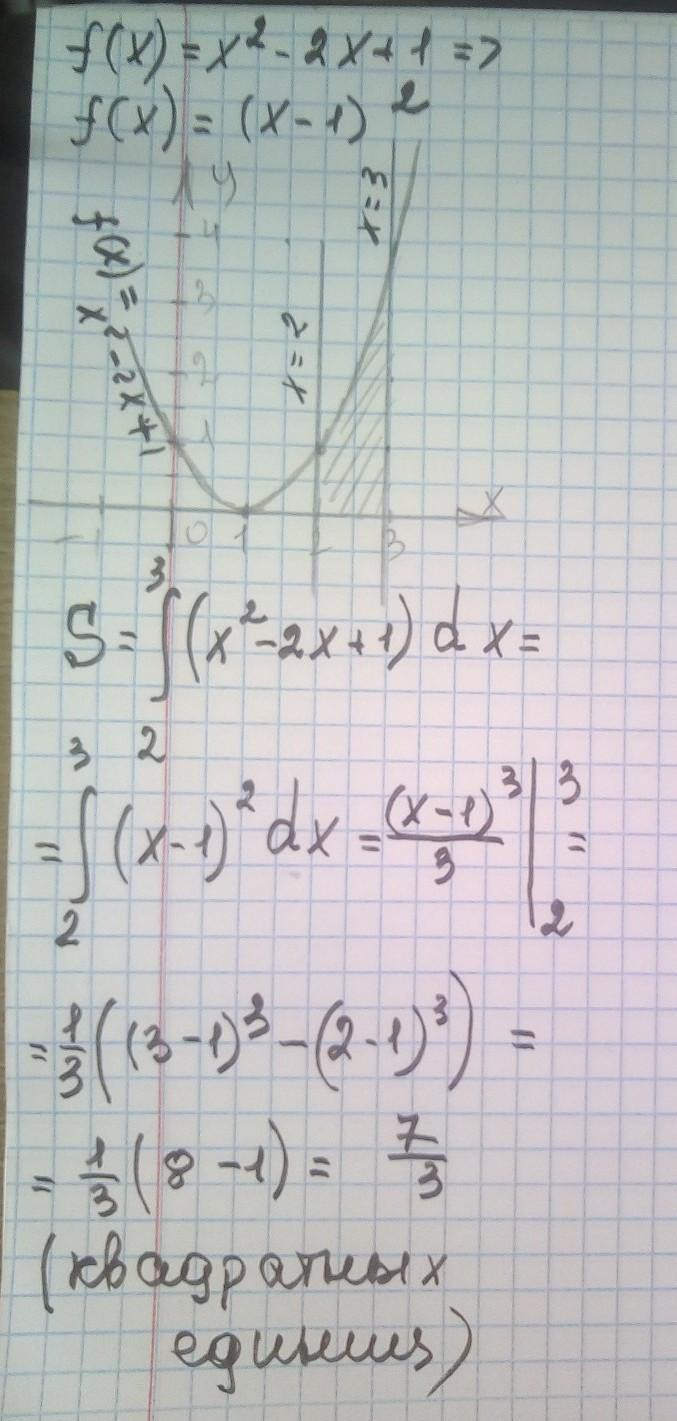 f(x) = x² - 2x + 1 =>
f(x) = (x-1)²
y
x = 3
4
f(x) = x² - 2x + 1
3
x = 2
2
1
x
-1 0 1 2 3
S = ∫₂³ (x² - 2x + 1) dx =
= ∫₂³ (x-1)² dx = (x-1)³/3 |₂³ =
= 1/3 ((3-1)³ - (2-1)³) =
= 1/3 (8 - 1) = 7/3
(квадратных
единиц)